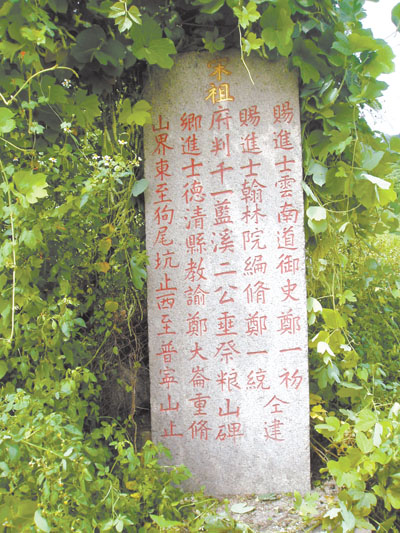 賜進士雲南道御史鄭一初
賜進士翰林院編脩鄭一統
仝建
宋祖府判千一藍溪二公垂祭粮山碑
鄉進士德清縣教諭鄭大崙重脩
山界東至狗尾坑止西至普寧山止